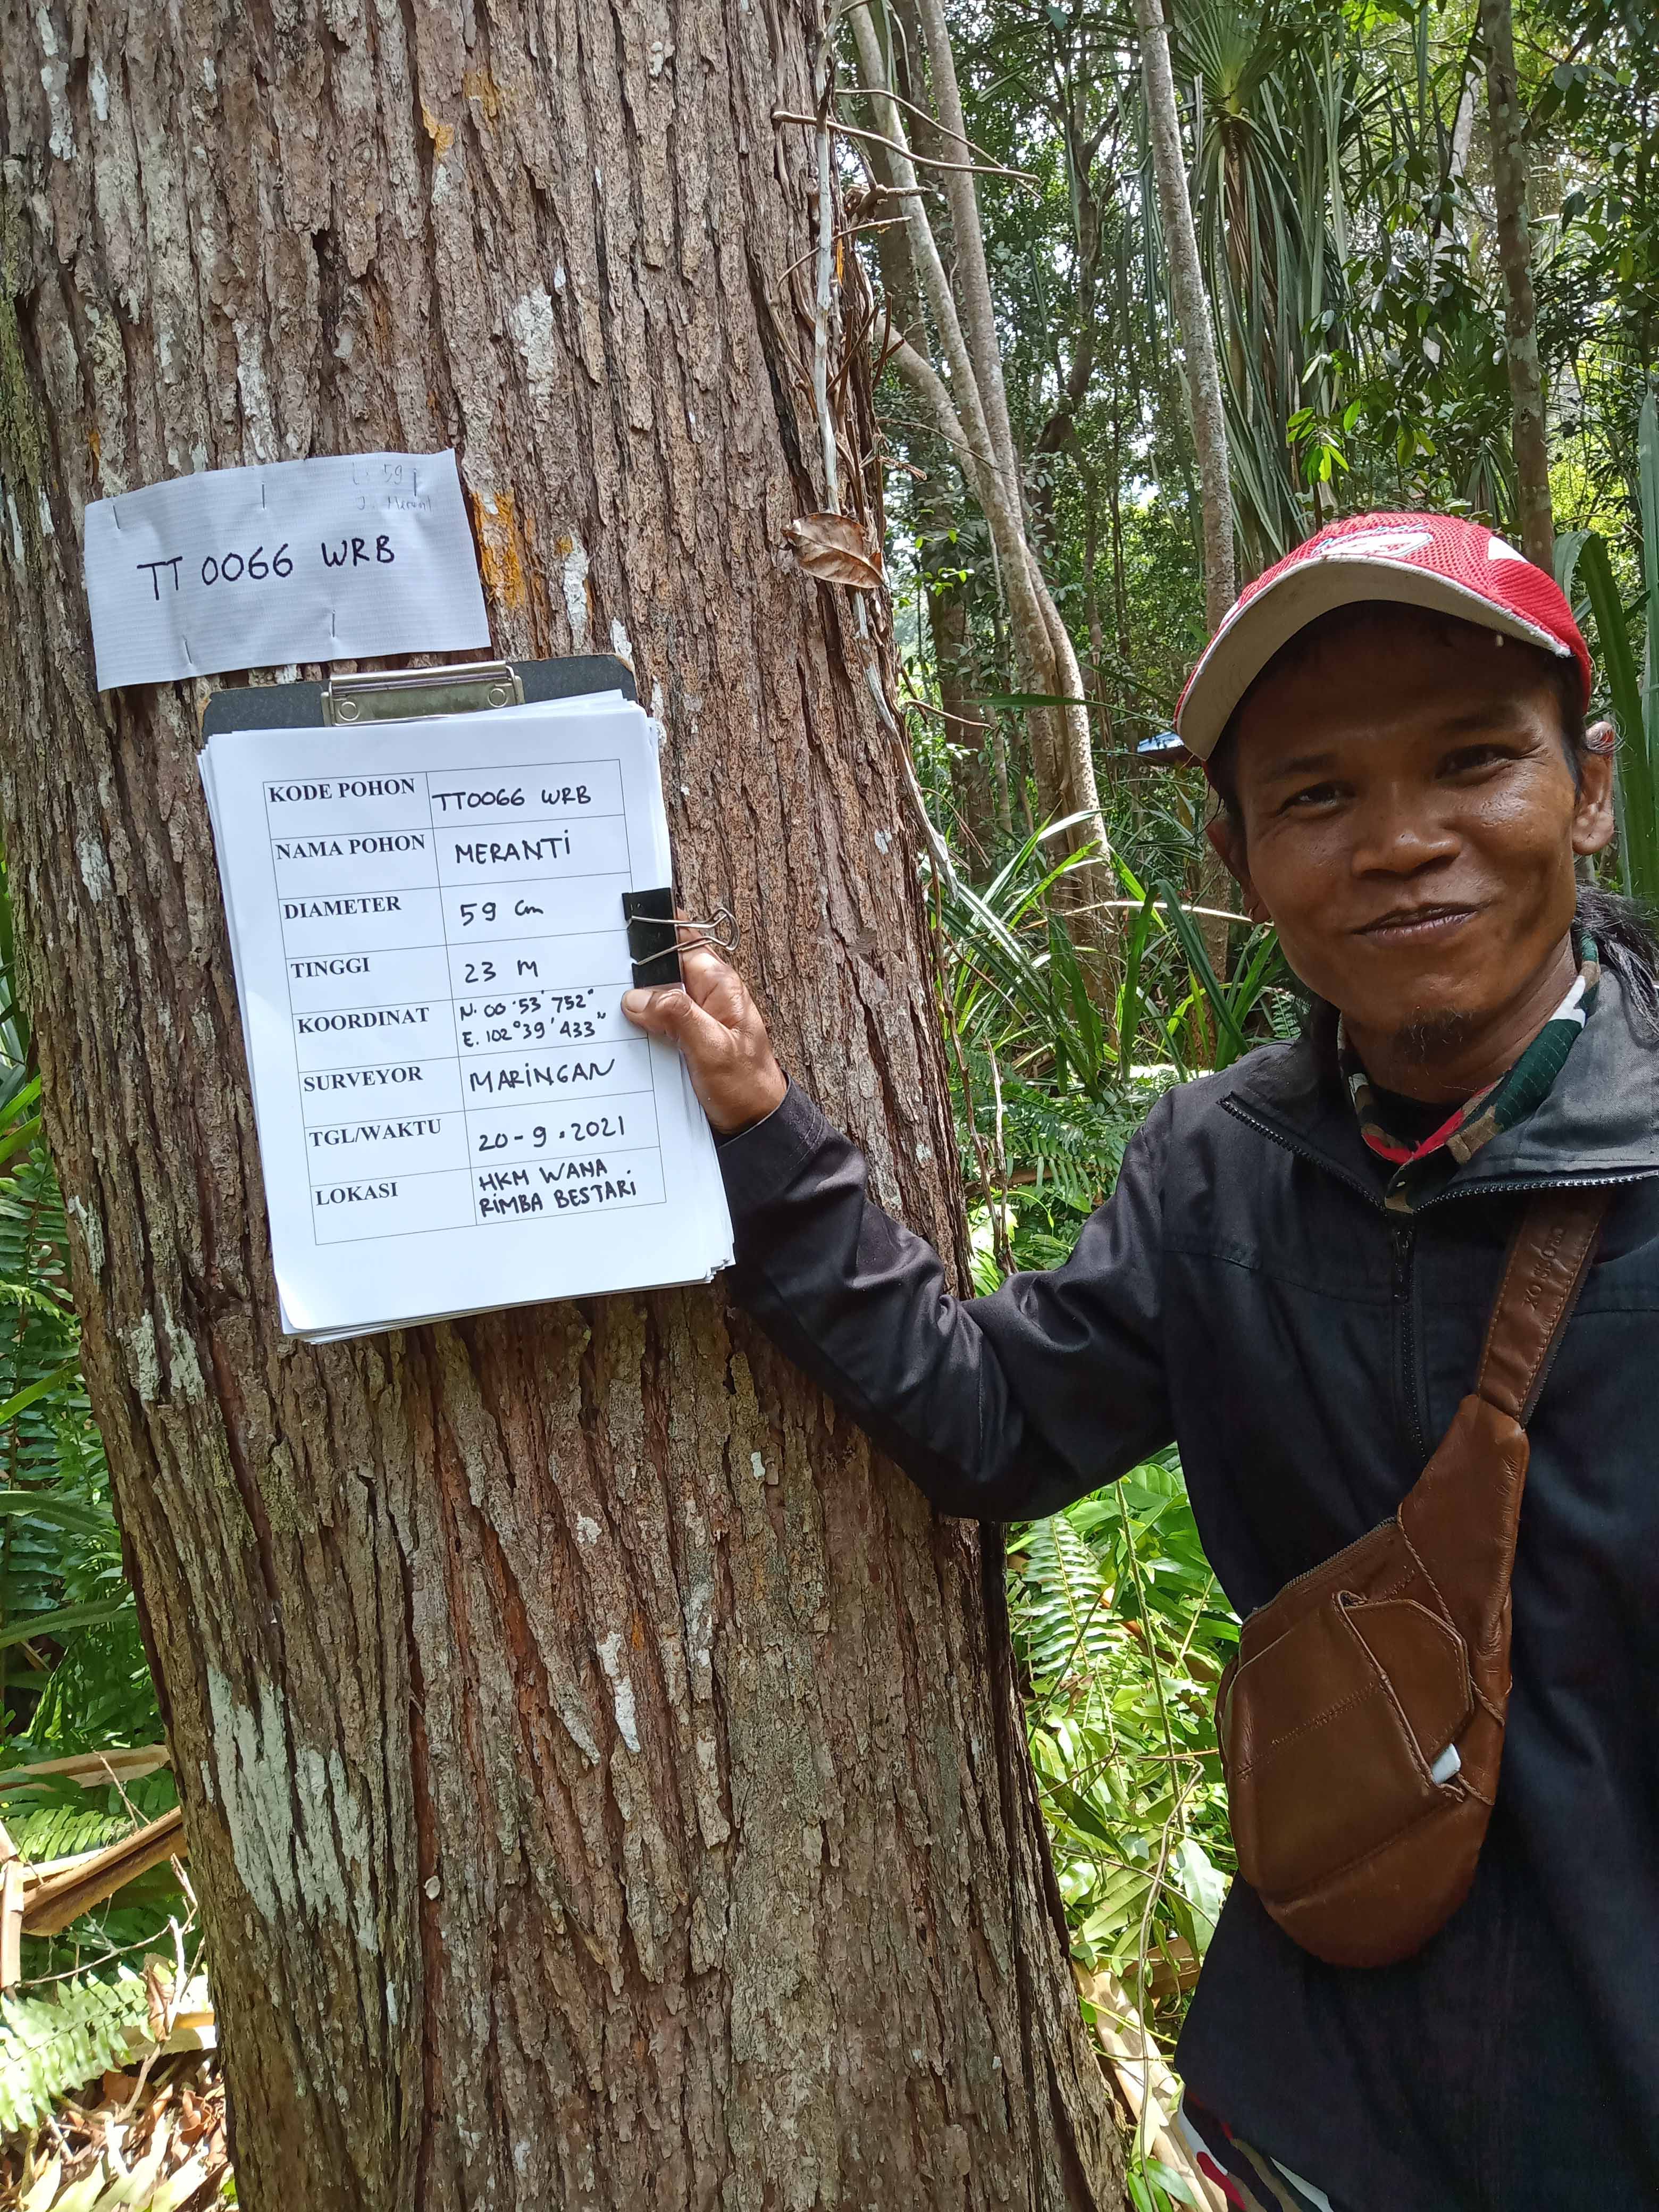 59
J. Meranti
TT 0066 WRB
KODE POHON TT0066 WRB
NAMA POHON MERANTI
DIAMETER 59 Cm
TINGGI 23 M
KOORDINAT N. 00°53'752"
E. 102°39'433"
SURVEYOR MARINGAN
TGL/WAKTU 20-9.2021
LOKASI HKM WANA
RIMBA BESTARI